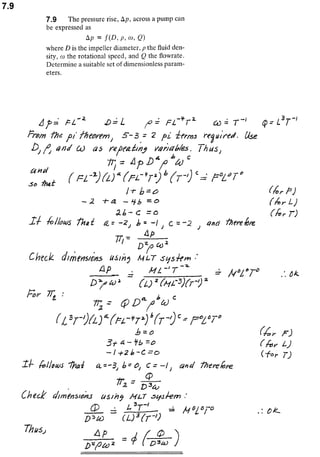 7.9
7.9 The pressure rise, Δp, across a pump can
be expressed as
Δp = f(D, ρ, ω, Q)
where D is the impeller diameter, ρ the fluid den-
sity, ω the rotational speed, and Q the flowrate.
Determine a suitable set of dimensionless param-
eters.
Δp ≐ FL⁻² D ≐ L ρ ≐ FL⁻⁴T² ω ≐ T⁻¹ Q ≐ L³T⁻¹
From the pi theorem, 5-3 = 2 pi terms required. Use
D, ρ, and ω as repeating variables. Thus,
π₁ = Δp Dᵃ ρᵇ ωᶜ
and
(FL⁻²)(L)ᵃ(FL⁻⁴T²)ᵇ(T⁻¹)ᶜ ≐ F⁰L⁰T⁰
so that
1 + b = 0 (for F)
-2 + a - 4b = 0 (for L)
2b - c = 0 (for T)
It follows that a = -2, b = -1, c = -2, and therefore
π₁ = Δp / D²ρω²
Check dimensions using MLT system:
Δp / D²ρω² ≐ ML⁻¹T⁻² / (L)²(ML⁻³)(T⁻¹)² ≐ M⁰L⁰T⁰ ∴ ok
For π₂ :
π₂ = Q Dᵃ ρᵇ ωᶜ
(L³T⁻¹)(L)ᵃ(FL⁻⁴T²)ᵇ(T⁻¹)ᶜ ≐ F⁰L⁰T⁰
b = 0 (for F)
3 + a - 4b = 0 (for L)
-1 + 2b - c = 0 (for T)
It follows that a = -3, b = 0, c = -1, and therefore
π₂ = Q / D³ω
Check dimensions using MLT system:
Q / D³ω ≐ L³T⁻¹ / (L)³(T⁻¹) ≐ M⁰L⁰T⁰ ∴ ok
Thus,
Δp / D²ρω² = φ(Q / D³ω)